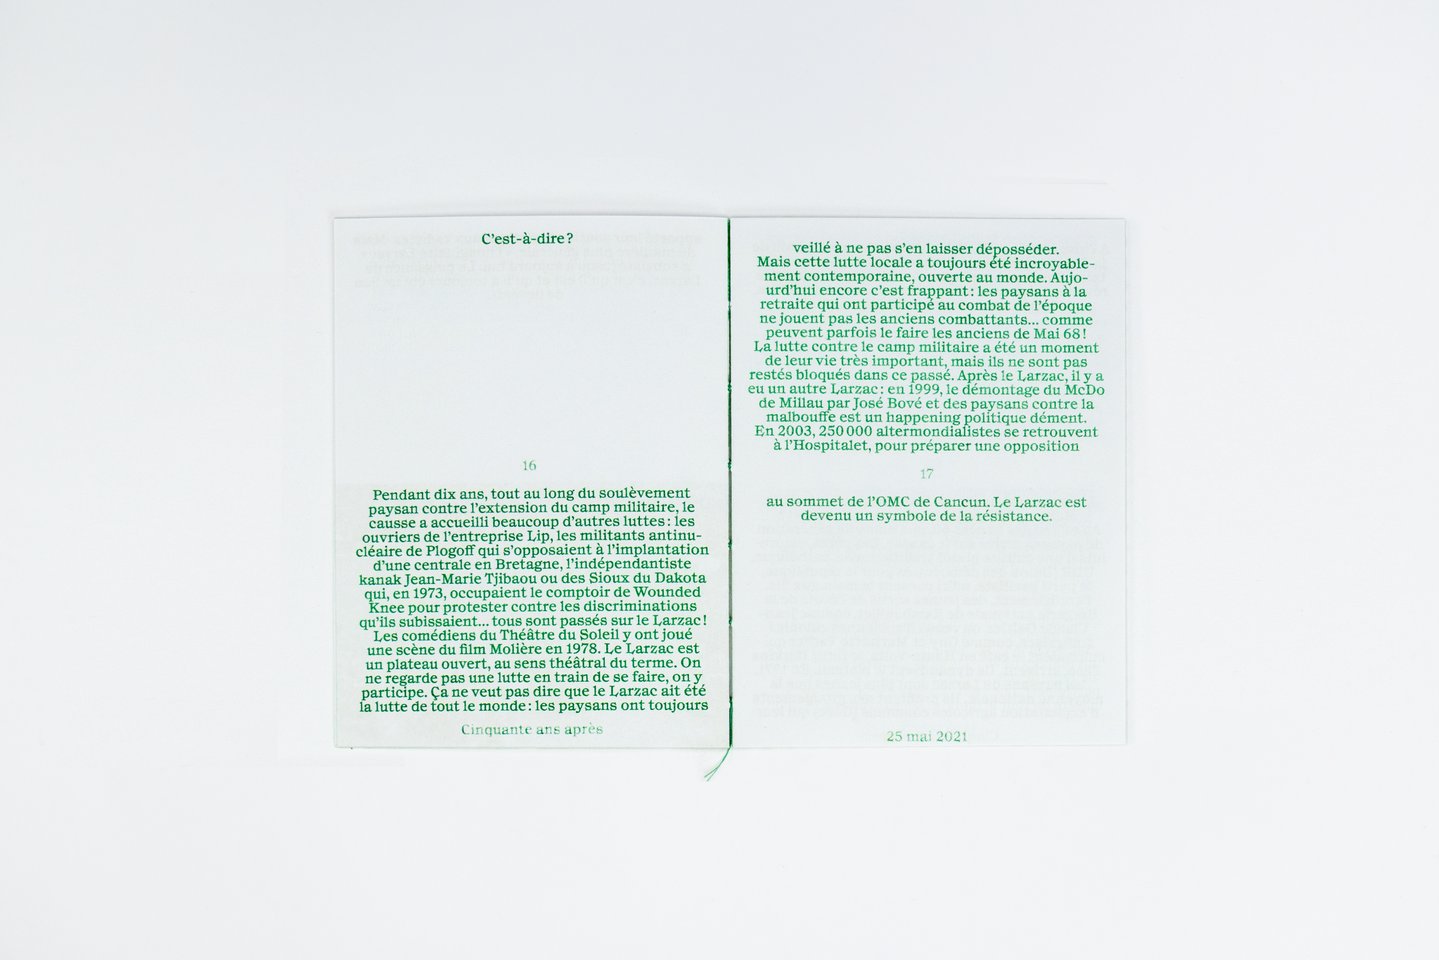 C'est-à-dire ?
16
Pendant dix ans, tout au long du soulèvement
paysan contre l'extension du camp militaire, le
causse a accueilli beaucoup d'autres luttes : les
ouvriers de l'entreprise Lip, les militants antinu-
cléaire de Plogoff qui s'opposaient à l'implantation
d'une centrale en Bretagne, l'indépendantiste
kanak Jean-Marie Tjibaou ou des Sioux du Dakota
qui, en 1973, occupaient le comptoir de Wounded
Knee pour protester contre les discriminations
qu'ils subissaient... tous sont passés sur le Larzac !
Les comédiens du Théâtre du Soleil y ont joué
une scène du film Molière en 1978. Le Larzac est
un plateau ouvert, au sens théâtral du terme. On
ne regarde pas une lutte en train de se faire, on y
participe. Ça ne veut pas dire que le Larzac ait été
la lutte de tout le monde : les paysans ont toujours
Cinquante ans après
veillé à ne pas s'en laisser déposséder.
Mais cette lutte locale a toujours été incroyable-
ment contemporaine, ouverte au monde. Aujo-
urd'hui encore c'est frappant : les paysans à la
retraite qui ont participé au combat de l'époque
ne jouent pas les anciens combattants... comme
peuvent parfois le faire les anciens de Mai 68 !
La lutte contre le camp militaire a été un moment
de leur vie très important, mais ils ne sont pas
restés bloqués dans ce passé. Après le Larzac, il y a
eu un autre Larzac : en 1999, le démontage du McDo
de Millau par José Bové et des paysans contre la
malbouffe est un happening politique dément.
En 2003, 250 000 altermondialistes se retrouvent
à l'Hospitalet, pour préparer une opposition
17
au sommet de l'OMC de Cancun. Le Larzac est
devenu un symbole de la résistance.
25 mai 2021